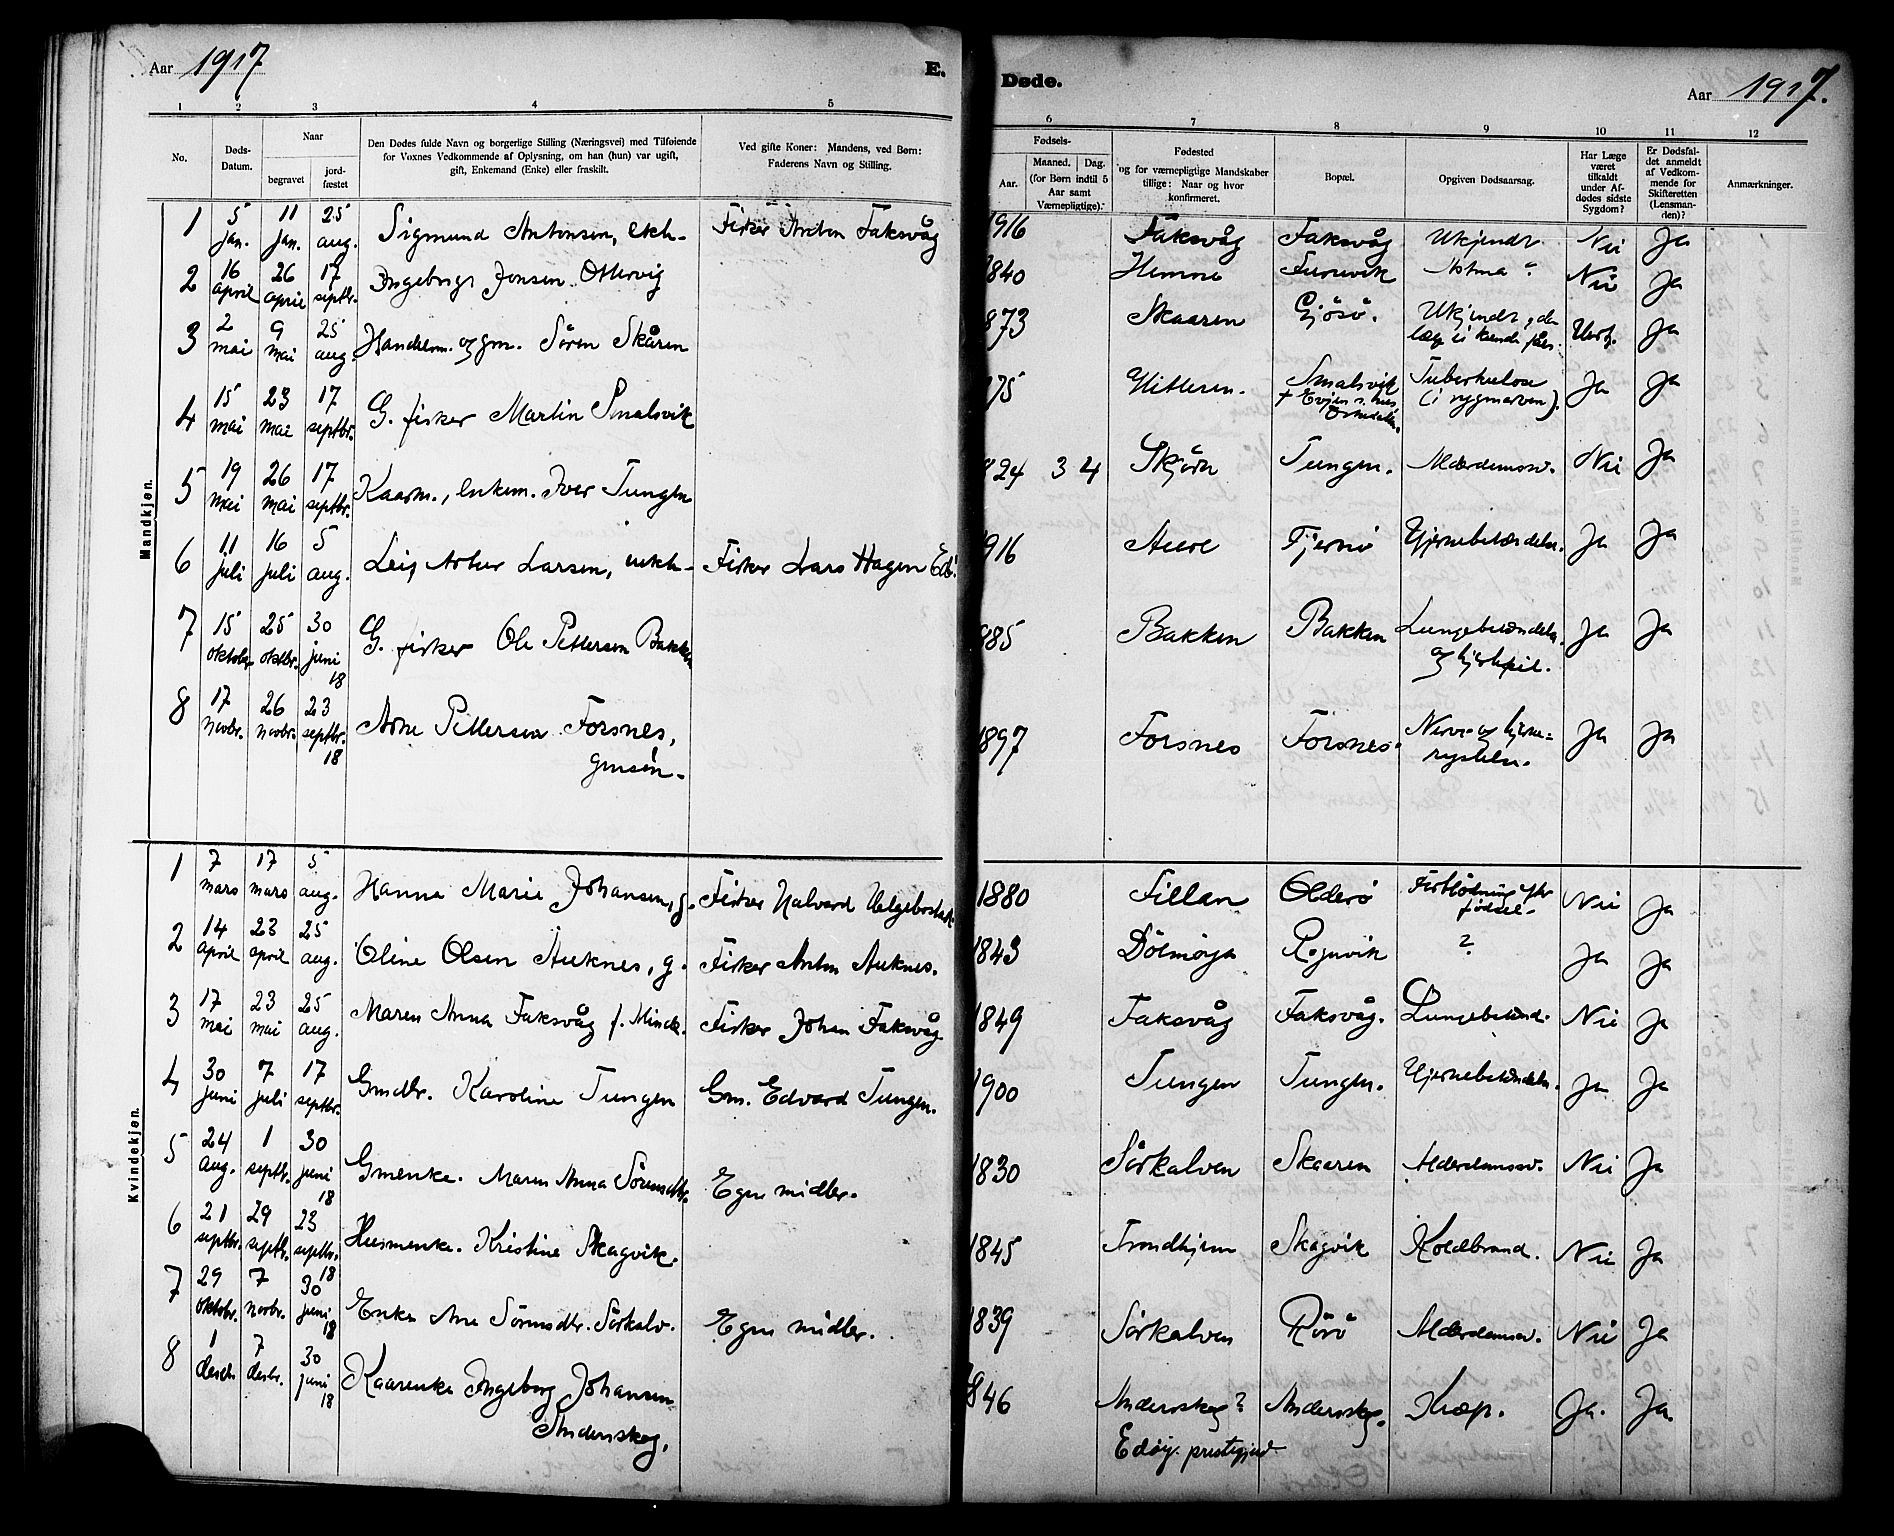 Aar 1917
E.
Døde.
Aar 1917.
1 2 3 4 5 6 7 8 9 10 11 12
No.
Døds-Datum.
Naar
begravet
jord-fæstet
Den Dødes fulde Navn og borgerlige Stilling (Næringsvei) med Tilføiende
for Voxnes Vedkommende af Oplysning, om han (hun) var ugift,
gift, Enkemand (Enke) eller fraskilt.
Ved gifte Koner: Mandens, ved Børn:
Faderens Navn og Stilling.
Fødsels-
Aar.
Maaned. Dag.
(for Børn indtil 5
Aar samt
Værnepligtige).
Fødested
og for værnepligtige Mandskaber
tillige: Naar og hvor
konfirmeret.
Bopæl.
Opgiven Dødsaarsag.
Har Læge
været
tilkaldt
under Af-
dødes sidste
Sygdom?
Er Dødsfal-
det anmeldt
af Vedkom-
mende for
Skifteretten
(Lensman-
den)?
Anmærkninger.
Mandkjøn.
1 5 jan. 11 jan. 25 aug. Sigmund Antonsen, ekh- Fisker Anton Faksvåg 916 Faksvåg Faksvåg Ukjendt Nei Ja
2 16 april 26 april 17 septbr. Ingebrigt Jonsen Ottervig 840 Hemne Astma? Nei Ja
3 2 mai 9 mai 25 aug. Handelsm. og gm. Sören Skåren 873 Skaaren Gjösö. Ukjendt, da læge ei kunde fåes. Ja
4 15 mai 23 mai 17 septbr. G. fisker Martin Smalsvik 75 Hitteren. Smalsvik Tuberkulose (i rygmarven). Ja Ja
5 19 mai 26 mai 17 septbr. Kaarm., enkem. Iver Tungen 824 3 4 Skjörn Tungen. Alderdomssv. Nei Ja
6 11 juli 16 juli 5 aug. Leif Artur Larsen, uekh- Fisker Lars Hagen 916 Aure Fjernö Hjernebetændelse. Ja Ja
7 15 oktober 25 oktbr. 30 juni 18 G. fisker Ole Pettersen Bakken 885 Bakken Bakken Lungebetændelse og hjertefeil. Ja Ja
8 17 novbr. 26 novbr. 23 septbr. 18 Arne Pettersen Forsnes, gmsön. 1897 Forsnes Forsnes. Nerve- og hjernerystelse. Ja Ja
Kvindekjøn.
1 7 mars 17 mars 5 aug. Hanna Marie Johansen, g. Fisker Halvard Helgebostad 1880 Fillan Olderö Forblödning efter födsel. Nei Ja
2 14 april 23 april 25 aug. Oline Olsen Auknes, g. Fisker Anton Auknes. 1843 Dolmöya ? Ja Ja
3 17 mai 23 mai 25 aug. Maren Anna Faksvåg f. Fisker Johan Faksvåg 1849 Faksvåg Faksvåg. Lungebetænd. Nei Ja
4 30 juni 7 juli 17 septbr. Gmdtr. Karoline Tungen Gm. Edvard Tungen. 1900 Tungen Tungen. Hjernebetændelse. Ja Ja
5 24 aug. 1 septbr. 30 juni 18 Gmenke. Maren Anna Sörensdtr. Egne midler. 1830 Sörkalven Skaaren Alderdomssv. Nei Ja
6 21 septbr. 29 septb. 23 septbr. 18 Husmenke. Kristine Skagvik. 1845 Trondhjem Skagvik Koldbrand. Nei Ja
7 29 oktobr. 7 novbr. 30 juni 18 Enke Ane Sörensdtr. Sörkalv. Egne midler. 1839 Sörkalven Rörö Alderdomssv. Nei Ja
8 1 desbr. 7 desbr. 30 juni 18 Kaarenke Ingeborg Johansen Anderskog. 846 Anderskog? Edöy prestegjæld Anderskog. Kræft. Ja. Ja.